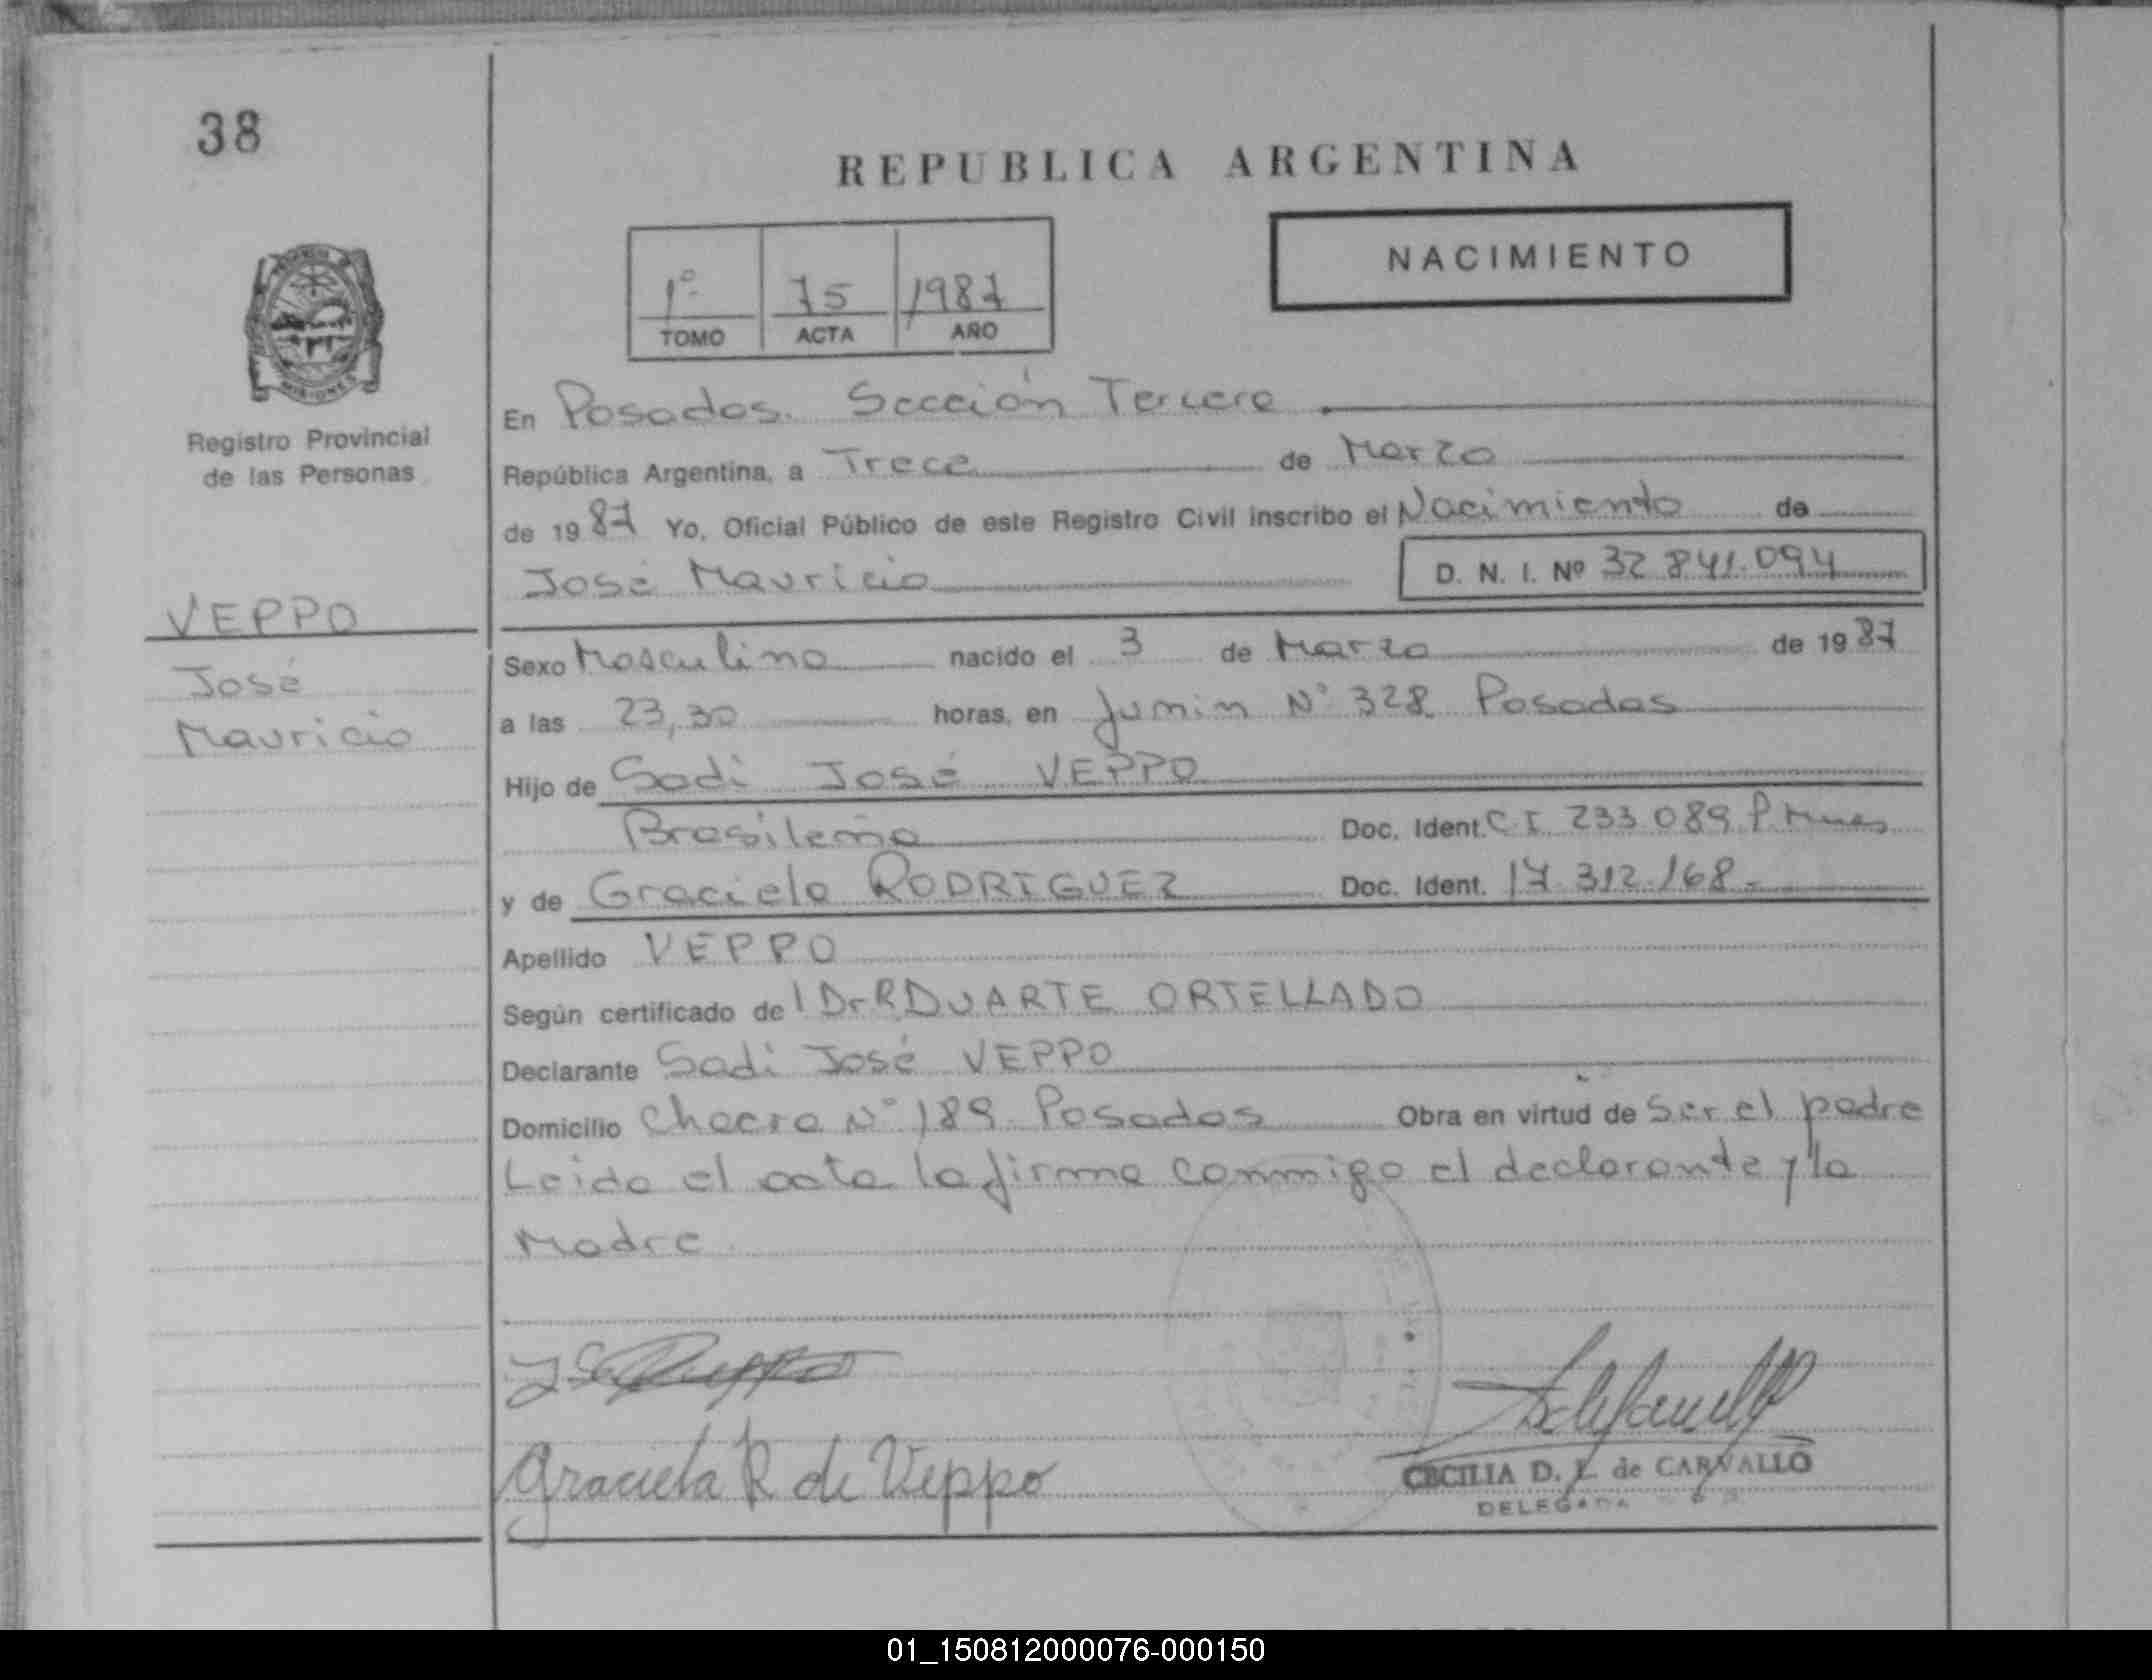 38
REPUBLICA ARGENTINA
NACIMIENTO
1º 75 1987
TOMO ACTA AÑO
Registro Provincial
de las Personas
En Posadas. Sección Tercera
República Argentina, a Trece de Marzo
de 1987 Yo, Oficial Público de este Registro Civil inscribo el Nacimiento de
José Mauricio D. N. I. Nº 32 841.094
VEPPO
José
Mauricio
Sexo Masculino nacido el 3 de Marzo de 1987
a las 23,30 horas, en Junin Nº 328 Posadas
Hijo de Sadi José VEPPO
Brasileña Doc. Ident. C I 233 089 P.
y de Graciela RODRIGUEZ Doc. Ident. 17 312.168-
Apellido VEPPO
Según certificado de l Dr R DUARTE ORTELLADO
Declarante Sadi José VEPPO
Domicilio Chacra Nº 189 Posadas Obra en virtud de Ser el padre
Leida el acta la firma conmigo el declarante y la
Madre
Graciela R de Veppo
CECILIA D. L. de CARVALLO
DELEGADA
01_150812000076-000150